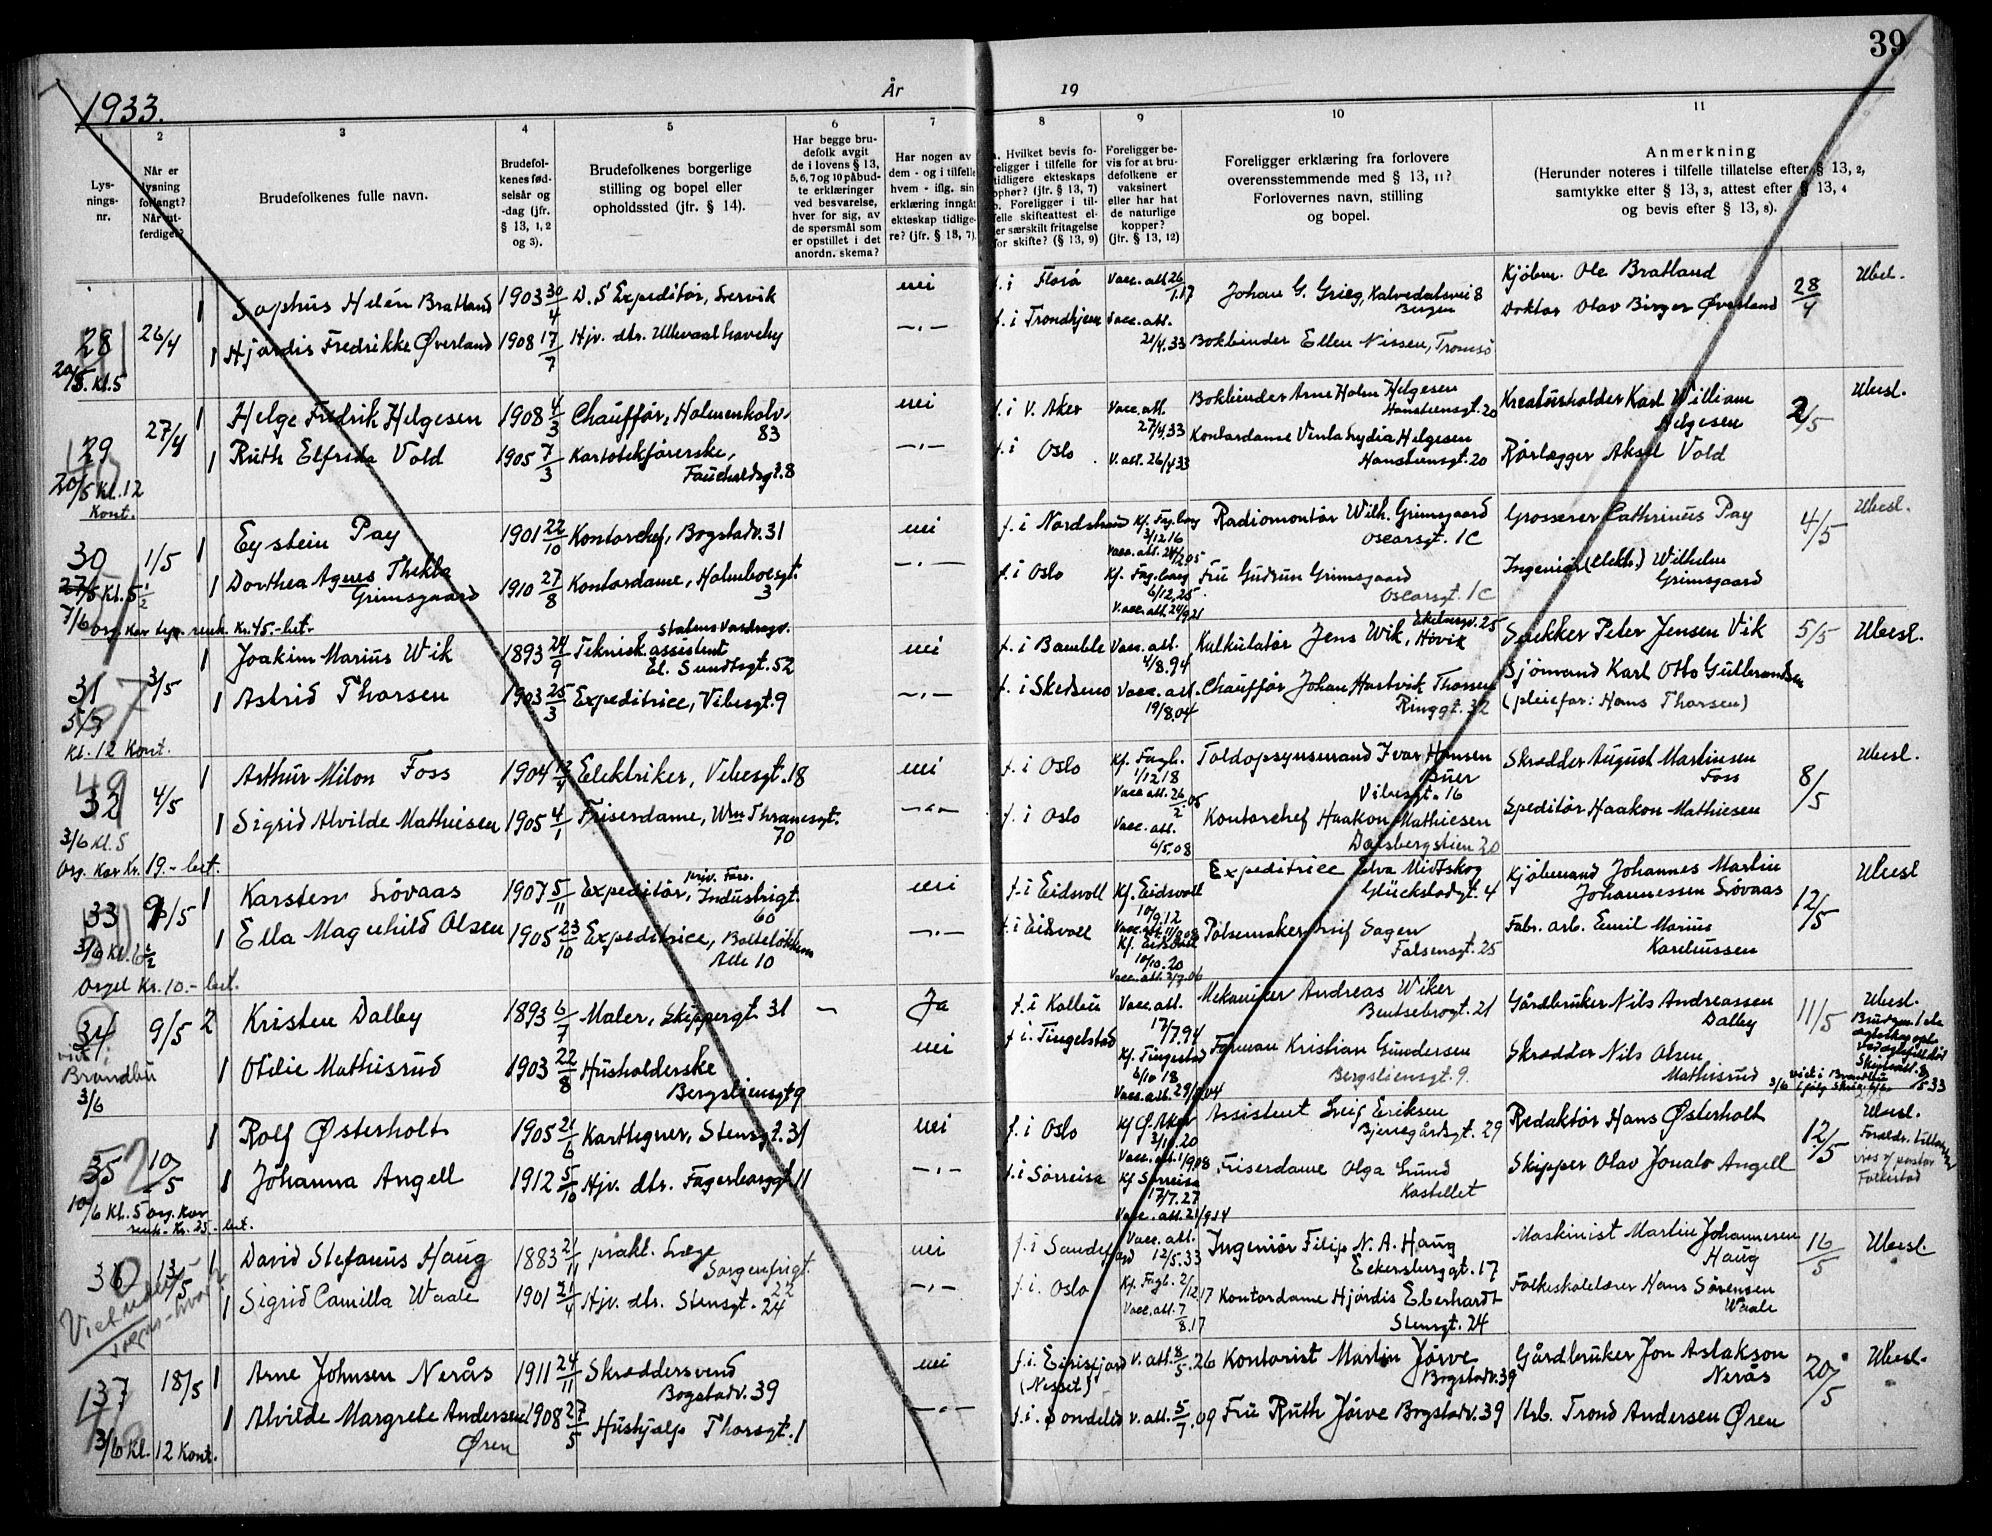 39
1933.
År
19
1
2
3
4
5
6
7
8
9
10
11
Lys-
nings-
nr.
Når er
lysning
forlangt?
Når ut-
ferdiget?
Brudefolkenes fulle navn.
Brudefol-
kenes fød-
selsår og
-dag (jfr.
§ 13, 1, 2
og 3).
Brudefolkenes borgerlige
stilling og bopel eller
opholdssted (jfr. § 14).
Har begge bru-
defolk avgit
de i lovens § 13,
5, 6, 7 og 10 påbud-
te erklæringer
ved besvarelse,
hver for sig, av
de spørsmål som
er opstillet i det
anordn. skema?
Har nogen av
dem - og i tilfelle
hvem - iflg. sin
erklæring inngåt
ekteskap tidlige-
re? (jfr. § 13, 7).
a. Hvilket bevis fo-
religger i tilfelle for
tidligere ekteskaps
ophør? (jfr. § 13, 7)
b. Foreligger i til-
felle skifteattest el-
ler særskilt fritagelse
for skifte? (§ 13, 9)
Foreligger be-
vis for at bru-
defolkene er
vaksinert
eller har hat
de naturlige
kopper?
(jfr. § 13, 12)
Foreligger erklæring fra forlovere
overensstemmende med § 13, 11?
Forlovernes navn, stilling
og bopel.
Anmerkning
(Herunder noteres i tilfelle tillatelse efter § 13, 2,
samtykke efter § 13, 3, attest efter § 13, 4
og bevis efter § 13, 8).
28 26/4 1 Sophus Helén Bratland 1903 30/4 D.S Expeditør, Lervik nei f. i Florø Vacc. att. 26/1.17 Johan G. Grieg, Kalvedalsvei 8 Bergen Kjøbm. Ole Bratland 28/4 Ubesl.
1 Hjørdis Fredrikke Øverland 1908 17/7 Hjv. dtr. Ullevaal haveby -,- f. i Trondhjem Vacc. att. 21/4.33 Bokbinder Ellen Nissen, Tromsø Doktor Olav Birger Øverland
20/5. Kl. 5
29 27/4 1 Helge Fredrik Helgesen 1908 4/3 Chauffør, Holmenkolv. 83 nei f. i V. Aker Vacc. att. 27/4.33 Bokbinder Arne Holm Helgesen Hansteensgt. 20 Kreaturholder Karl William Helgesen 2/5 Ubesl.
1 Ruth Elfrida Vold 1905 7/3 Kartotekførerske, Fauchaldsgt. 8 -,- f. i Oslo V. att. 26/4 33 Kontordame Venla Lydia Helgesen Hansteensgt. 20 Rørlægger Aksel Vold
20/5 Kl. 12
Kont.
30 1/5 1 Eystein Pay 1901 22/10 Kontorchef, Bogstadv. 31 nei f. i Nordstrand Kf. Fag.borg 3/12 16 Vacc. att. 24/2.05 Radiomontør Wilh. Grimsgaard Oscarsgt. 1C Grosserer Cathrinus Pay 4/5 Ubesl.
1 Dorthea Agnes Thekla Grimsgaard 1910 27/8 Kontordame, Holmboesgt. 3 -,- f. i Oslo Kf. Fag.borg 6/12.25. V. acc. att. 24/9.21 Fru Gudrun Grimsgaard Oscarsgt. 1C Ingeniør (elektr.) Wilhelm Grimsgaard
27/5 Kl. 5 1/2
7/6 org. Kor Kr. 45.- bet.
31 3/5 1 Joakim Marius Wik 1893 24/9 Teknisk assistent Statens Vasdragv. El. Sundtsgt. 52 nei f. i Bamble Vacc. att. 4/8.94 Kalkulatør Jens Wik, Høvik Snekker Peter Jensen Vik 5/5 Ubesl.
1 Astrid Thorsen 1903 25/3 Expeditrice, Vibesgt. 9 -,- f. i Skedsmo Vacc. att. 19/8.04 Chauffør Johan Hartvik Thorsen Ringgt. 32 Sjømand Karl Otto Gulbrandsen (pleiefar: Hans Thorsen)
5/5
Kl. 12 Kont.
32 4/5 1 Arthur Milon Foss 1904 Elektriker, Vibesgt. 18 nei f. i Oslo Kf. Fagb. 1/12 18 Vacc. att. 26/2 06 Toldopsynsmand Ivar Hansen Buer Vibesgt. 16 Skrædder August Martinsen Foss 8/5 Ubesl.
1 Sigrid Alvilde Mathiesen 1905 4/1 Friserdame, Wm Thranesgt. 70 -,- f. i Oslo Vacc. att. 6/5.08 Kontorchef Haakon Mathiesen Dalsbergstien 20 Speditør Haakon Mathiesen
3/6 Kl. 5
Org. Kor Kr. 19.- bet.
33 9/5 1 Karsten Løvaas 1907 5/11 Expeditør, priv. Forr. Industrigt. 60 nei f. i Eidsvoll Kf. Eidsvoll 10/9.12 Expeditrice Elva Midtskog Glückstadgt. 4 Kjøbmand Johannes Martin Johannessen Løvaas 12/5 Ubesl
1 Ella Magnhild Olsen 1905 23/10 Expeditrice, Bolteløkken Alle 10 -,- f. i Eidsvoll Kf. Eidsvoll 10/10.20 Vacc. att. 2/7.06 Pølsemaker Leif Sagen Falsensgt. 25 Fabr. arb. Emil Marius Kareliussen
3/6 Kl. 6 1/2
Orgel Kr. 10.- bet.
34 9/5 2 Kristen Dalby 1893 6/7 Maler, Skippergt. 31 - Ja f. i Kolbu Vacc. att. 17/7.94 Mekaniker Andreas Wiker Bentsebrogt. 21 Gårdbruker Nils Andreassen Dalby 11/5 Ubesl.
1 Otilie Mathisrud 1903 22/8 Husholderske Bergsliensgt 9 nei f. i. Tingelstad Kf. Tingelstad 6/10 18 Vacc. att. 29/ 04 Forman Kristian Gundersen Bergsliensgt. 9. Skrædder Nils Olsen Mathisrud
viet i
Brandbu
3/6
35 10/5 1 Rolf Østerholt 1905 21/6 Karttegner, Stensgt. 31 nei f. i Oslo Kf Ø. Aker 3/10.20 Vacc. att. 1/9 08 Assistent Leif Eriksen Bjerregårdsgt. 29 Redaktør Hans Østerholt 12/5 Ubesl.
1 Johanna Angell 1912 5/10 Hjv. dtr. Fagerborggt 11 -,- f. i Sørreisa Kf Sørreisa 17/7.27 Vacc. att. 21/9.14 Friserdame Olga Lund Kastellet Skipper Olav Jonato Angell
10/6 Kl. 5 org. Kor
Kr. 25.- bet.
36 13/5 1 David Stefanus Haug 1883 21/11 prakt. Læge Sorgenfrigt. 22 nei f. i Sandefjord Vacc. att. 12/5.33 Ingeniør Filip N. A. Haug Eckersberggt. 17 Maskinist Martin Johannesen Haug 16/5 Ubesl.
1 Sigrid Camilla Waale 1901 21/4 Hjv. dtr. Stensgt. 24 -,- f. i. Oslo Kf. Fagb. 2/12 17 Vacc. att. 7/8.17 Kontordame Hjørdis Eberhardt Stensgt. 24 Folkeskolelærer Hans Sørensen Waale
37 18/5 1 Arne Johnsen Nerås 1911 24/11 Skræddersvend Bogstadv. 39 nei f. i. Eirisfjord (Nesset) V. att. 8/5.26 Kontorist Martin Jørve Bogstadv. 39 Gårdbruker Jon Aslakson Nerås 20/5 Ubesl.
1 Alvilde Margrete Andersen Øren 1908 27/5 Hushjælp Thorsgt. 1 -,- f. i. Søndeled V. att. 5/7.09 Fru Ruth Jørve Bogstadv. 39 Arb. Trond Andersen Øren
3/6 Kl. 12 Kont.